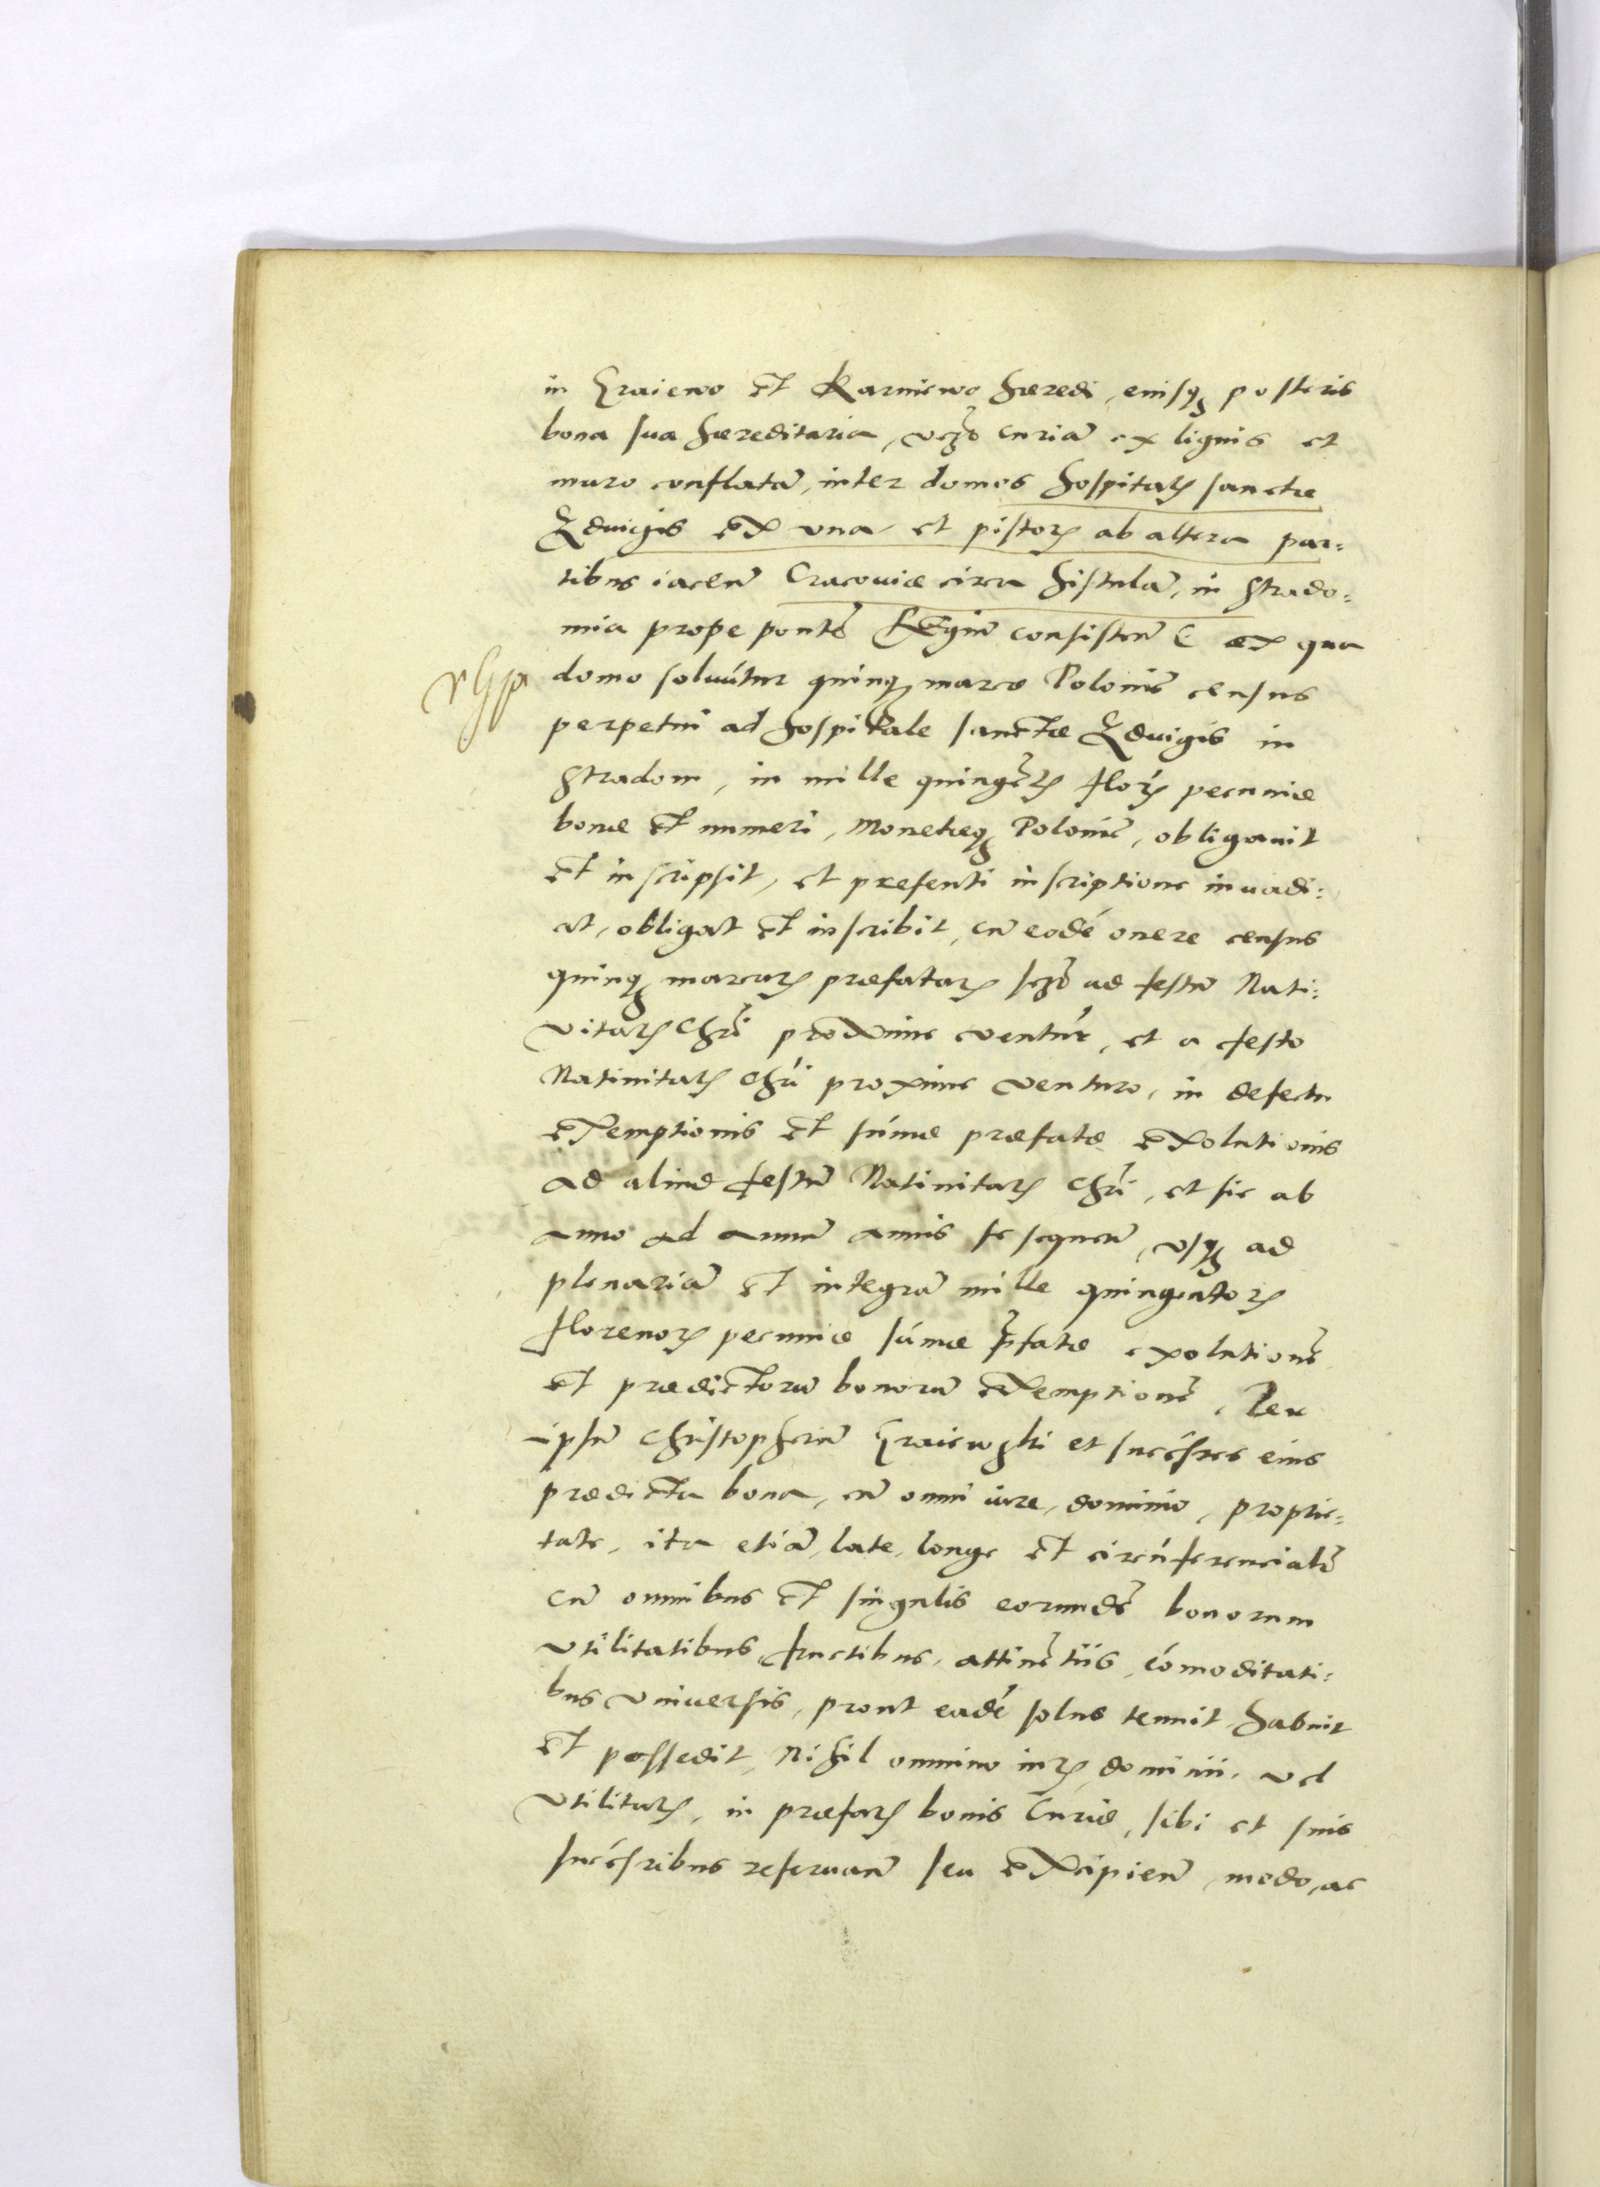 in Graiewo et Karniewo hæredi, eiusq₃ posteris
bona sua hæreditaria, vczõ curiã ex lignis et
muro conflatã, inter domos hospitaɫ sanctæ
Hedvigis ex una et pistoꝝ ab altera par=
tibus iaceñ Cracoviæ circa fistulã, in Strado=
mia prope pontẽ Regiũ consisteñ ex qua
domo solvũtur quinq₃ marcæ Poloniẽ census
perpetui ad hospitale sanctæ Hedvigis in
Stradom, in mille quingẽtis floꝝ pecuniæ
bonæ et numeri, Monetæq₃ Poloniẽ, obligavit
et inscripsit, et presenti inscriptione invadi=
at, obligat et inscribit, cũ eodẽ onere census
quinq₃ marcaꝝ præfataꝝ sczõ ad festũ Nati=
vitatis Chrĩ proxime ventuř, et a festo
Nativitatis Chrĩ proxime venturo, in defectu
exemptionis et sũmæ præfatæ exolutionis
ad aliud festũ Nativitatis Chrĩ, et sic ab
anno ad annũ annis se sequeñ, usq₃ ad
plenariã et integrã mille quingentoꝝ
florenoꝝ pecuniæ sũmæ p̃fatæ exolutionẽ
et prædictorũ bonorũ exemptionẽ. Per
ipsũ Christopherũ Graiewski et succẽsores eius
prædicta bona, cũ omni iure, dominio, proprie=
tate, ita etiã, late, longe et circũferencialẽ
cũ omnibus et singulis eorundẽ bonorum
utilitatibus, fructibus, attinẽtiis, cõmoditati=
bus universis, prout eadẽ solus tenuit habuit
et possedit, Nihil omnino iuris, dominii, vel
utilitatis, in præfatis bonis Curiæ, sibi et suis
succẽsoribus reservañ seu excipieñ, modo, ac